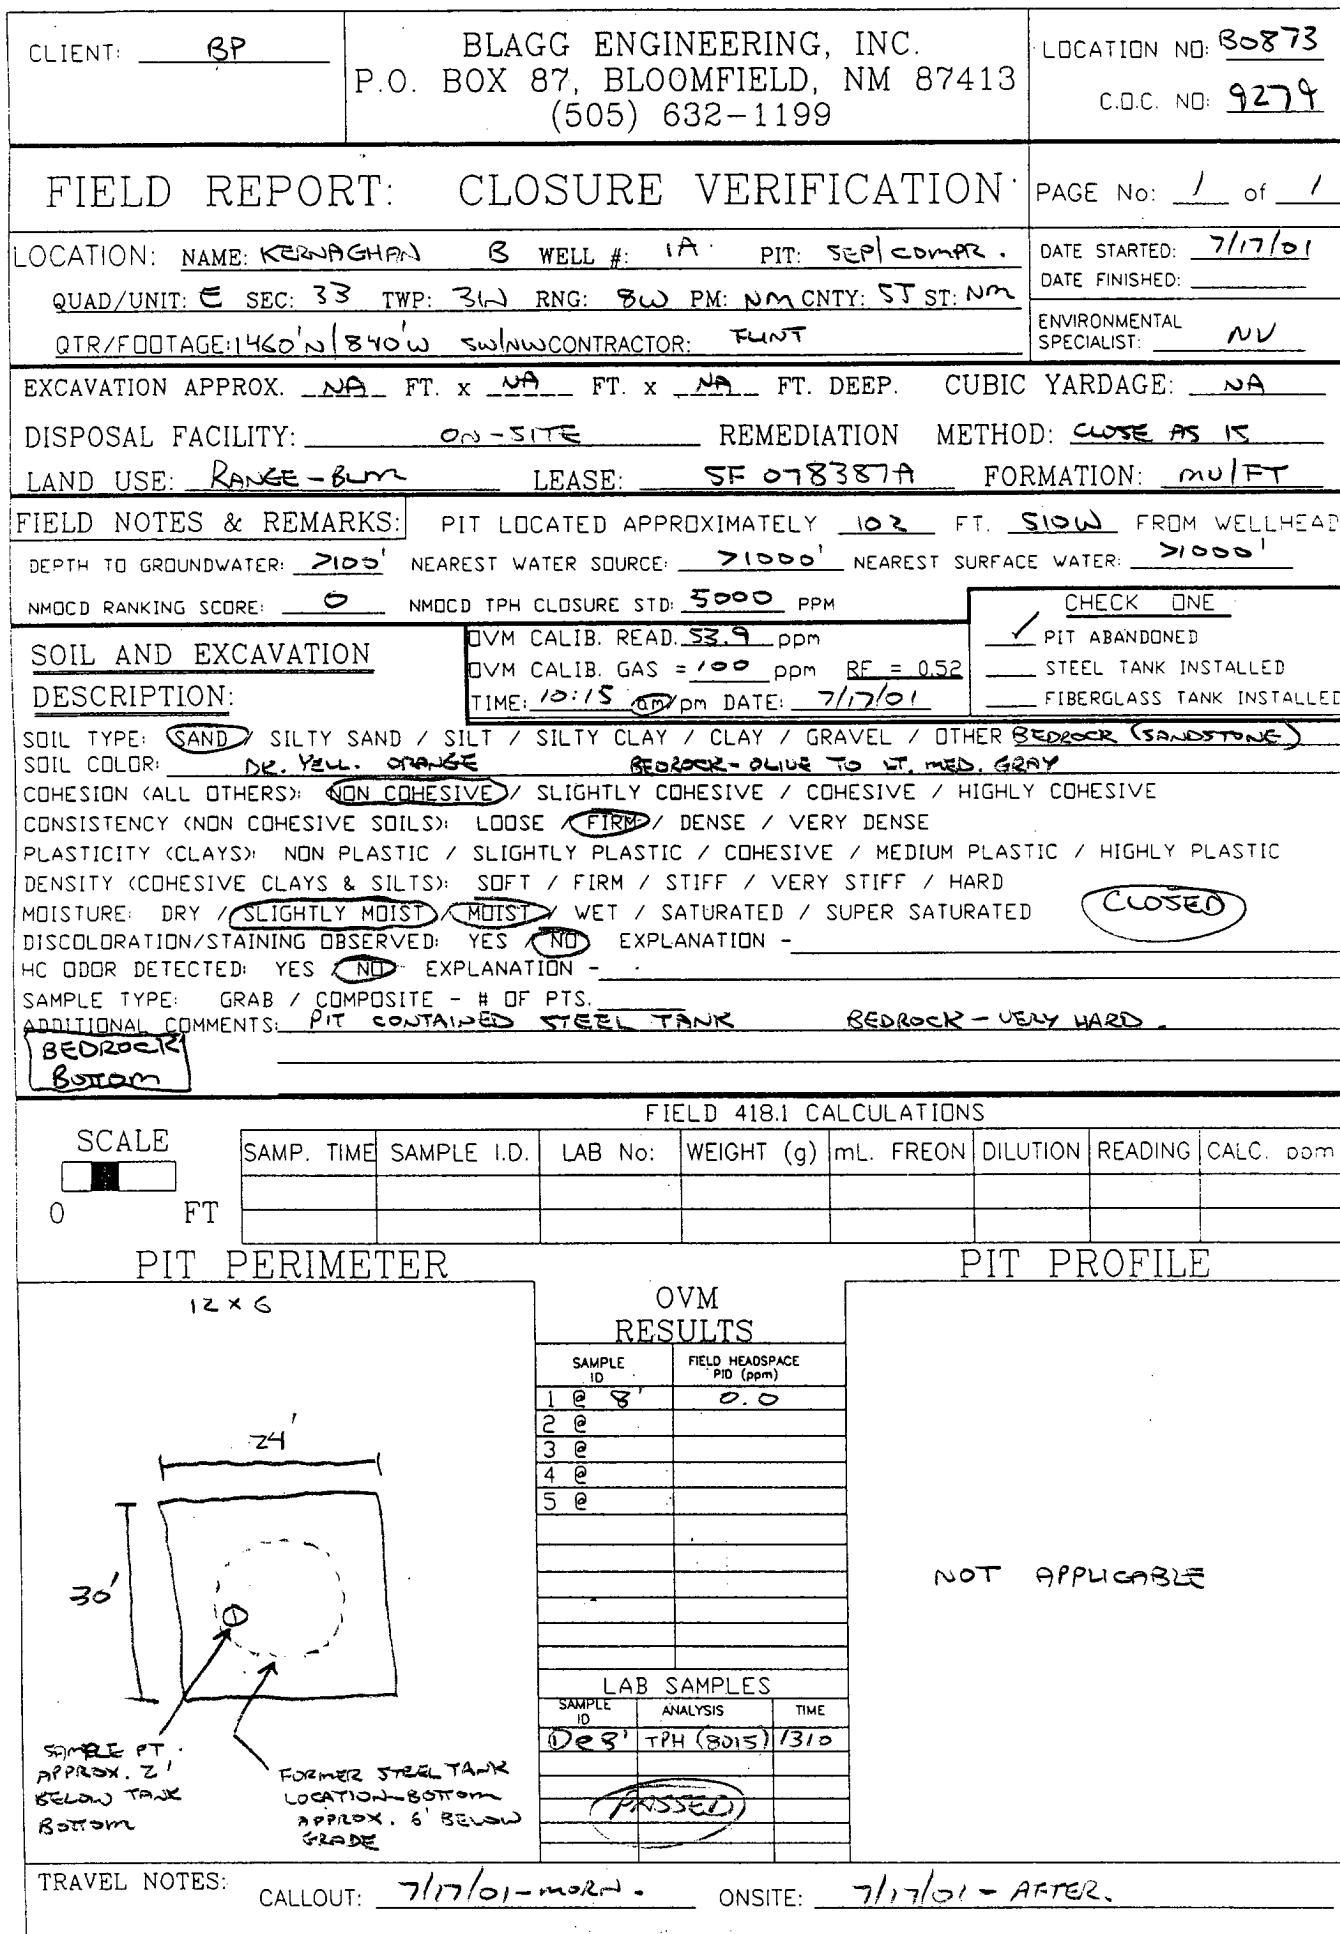 CLIENT: BP
BLAGG ENGINEERING, INC.
P.O. BOX 87, BLOOMFIELD, NM 87413
(505) 632-1199
LOCATION NO: B0873
C.O.C. NO: 9279
FIELD REPORT: CLOSURE VERIFICATION
PAGE No: 1 of 1
LOCATION: NAME: KERNAGHAN B WELL #: 1A PIT: SEP/COMPR.
QUAD/UNIT: E SEC: 33 TWP: 31N RNG: 8W PM: NM CNTY: SJ ST: NM
QTR/FOOTAGE: 1460'N/840'W SW/NW CONTRACTOR: FLINT
DATE STARTED: 7/17/01
DATE FINISHED:
ENVIRONMENTAL
SPECIALIST: NV
EXCAVATION APPROX. NA FT. x NA FT. x NA FT. DEEP. CUBIC YARDAGE: NA
DISPOSAL FACILITY: ON-SITE REMEDIATION METHOD: CLOSE AS IS
LAND USE: RANGE-BLM LEASE: SF 078387A FORMATION: MV/FT
FIELD NOTES & REMARKS: PIT LOCATED APPROXIMATELY 102 FT. S10W FROM WELLHEAD
DEPTH TO GROUNDWATER: >100' NEAREST WATER SOURCE: >1000' NEAREST SURFACE WATER: >1000'
NMOCD RANKING SCORE: 0 NMOCD TPH CLOSURE STD: 5000 PPM
CHECK ONE
✓ PIT ABANDONED
STEEL TANK INSTALLED
FIBERGLASS TANK INSTALLED
SOIL AND EXCAVATION
DESCRIPTION:
OVM CALIB. READ. 53.9 ppm
OVM CALIB. GAS = 100 ppm RF = 0.52
TIME: 10:15 am/pm DATE: 7/17/01
SOIL TYPE: SAND / SILTY SAND / SILT / SILTY CLAY / CLAY / GRAVEL / OTHER BEDROCK (SANDSTONE)
SOIL COLOR: DK. YELL. ORANGE BEDROCK - OLIVE TO LT. MED. GRAY
COHESION (ALL OTHERS): NON COHESIVE / SLIGHTLY COHESIVE / COHESIVE / HIGHLY COHESIVE
CONSISTENCY (NON COHESIVE SOILS): LOOSE / FIRM / DENSE / VERY DENSE
PLASTICITY (CLAYS): NON PLASTIC / SLIGHTLY PLASTIC / COHESIVE / MEDIUM PLASTIC / HIGHLY PLASTIC
DENSITY (COHESIVE CLAYS & SILTS): SOFT / FIRM / STIFF / VERY STIFF / HARD
MOISTURE: DRY / SLIGHTLY MOIST / MOIST / WET / SATURATED / SUPER SATURATED
CLOSED
DISCOLORATION/STAINING OBSERVED: YES / NO EXPLANATION -
HC ODOR DETECTED: YES / NO EXPLANATION -
SAMPLE TYPE: GRAB / COMPOSITE - # OF PTS.
ADDITIONAL COMMENTS: PIT CONTAINED STEEL TANK BEDROCK - VERY HARD.
BEDROCK
BOTTOM
FIELD 418.1 CALCULATIONS
SCALE
0 FT
SAMP. TIME SAMPLE I.D. LAB No: WEIGHT (g) mL. FREON DILUTION READING CALC. ppm
PIT PERIMETER
12 x 6
24'
30'
SAMPLE PT.
APPROX. 2'
BELOW TANK
BOTTOM
FORMER STEEL TANK
LOCATION-BOTTOM
APPROX. 6' BELOW
GRADE
OVM
RESULTS
SAMPLE ID FIELD HEADSPACE PID (ppm)
1 @ 8' 0.0
2 @
3 @
4 @
5 @
LAB SAMPLES
SAMPLE ID ANALYSIS TIME
①@8' TPH (8015) 1310
PASSED
PIT PROFILE
NOT APPLICABLE
TRAVEL NOTES: CALLOUT: 7/17/01-MORN. ONSITE: 7/17/01 - AFTER.